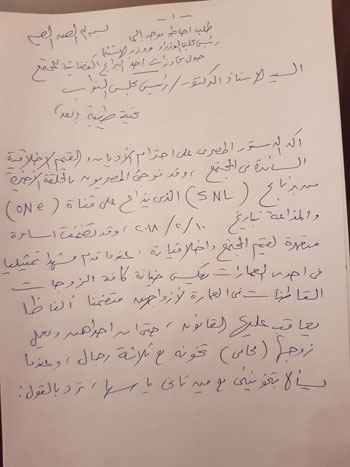 - ١ -
بسم الله الرحمن الرحيم
طلب إحاطة موجه إلى
رئيس مجلس الوزراء ووزير الاستثمار
حول تجاوزات إحدى البرامج الفضائية للمجتمع
السيد الأستاذ الدكتور / رئيس مجلس النواب
تحية طيبة وبعد،
أكد الدستور المصرى على احترام الأديان والقيم الأخلاقية
السائدة فى المجتمع، وقد فوجئ المصريون بالحلقة الأخيرة
من برنامج (SNL) الذى يذاع على قناة (ONe)
والمذاعة بتاريخ ١٠/٢/٢٠١٨، وقد تضمنت إساءة
متعمدة لقيم المجتمع وأخلاقياته، عندما قدم مشهدا تمثيليا
فى إحدى العمارات يعكس خيانة كافة الزوجات
القاطنات فى العمارة لأزواجهن متضمنا ألفاظا
يعاقب عليها القانون، حتى أن إحداهن ويعمل
زوجها (محامى) تخونه مع ثلاثة رجال، وعندما
يسألا بتخونينى مع مين تانى يا سها، ترد بالقول: